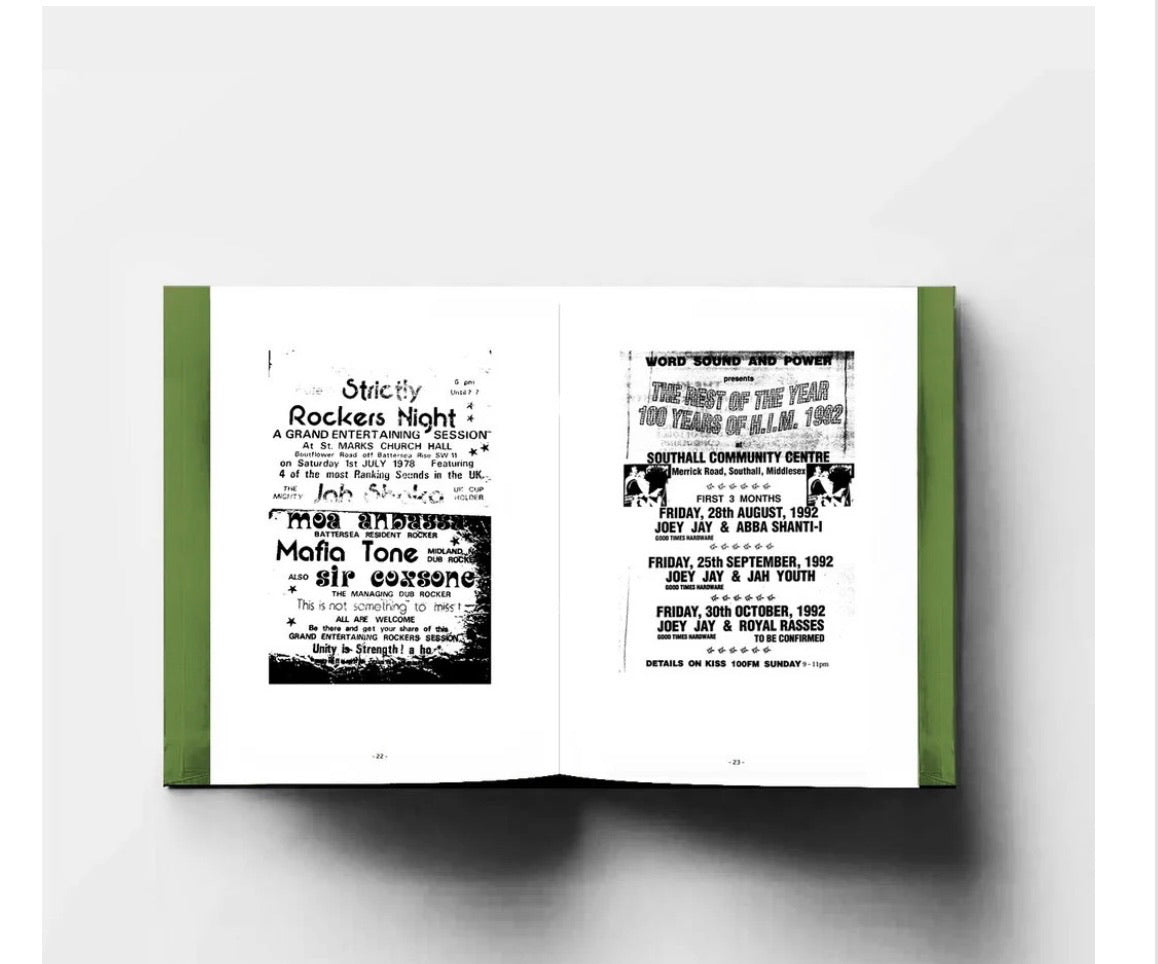 Strictly
6 pm
Until ? ?
Rockers Night
A GRAND ENTERTAINING SESSION
At St. MARKS CHURCH HALL
Boutflower Road off Battersea Rise SW 11
on Saturday 1st JULY 1978 Featuring
4 of the most Ranking Sounds in the UK
THE MIGHTY Jah Shaka UK CUP HOLDER
moa anbassa
BATTERSEA RESIDENT ROCKER
Mafia Tone MIDLAND DUB ROCKER
ALSO sir coxsone
THE MANAGING DUB ROCKER
This is not something to miss!
ALL ARE WELCOME
Be there and get your share of this
GRAND ENTERTAINING ROCKERS SESSION
Unity is Strength! a ho
- 22 -
WORD SOUND AND POWER
presents
THE BEST OF THE YEAR
100 YEARS OF H.I.M. 1992
at
SOUTHALL COMMUNITY CENTRE
Merrick Road, Southall, Middlesex
FIRST 3 MONTHS
FRIDAY, 28th AUGUST, 1992
JOEY JAY & ABBA SHANTI-I
GOOD TIMES HARDWARE
FRIDAY, 25th SEPTEMBER, 1992
JOEY JAY & JAH YOUTH
GOOD TIMES HARDWARE
FRIDAY, 30th OCTOBER, 1992
JOEY JAY & ROYAL RASSES
GOOD TIMES HARDWARE TO BE CONFIRMED
DETAILS ON KISS 100FM SUNDAY 9-11pm
- 23 -